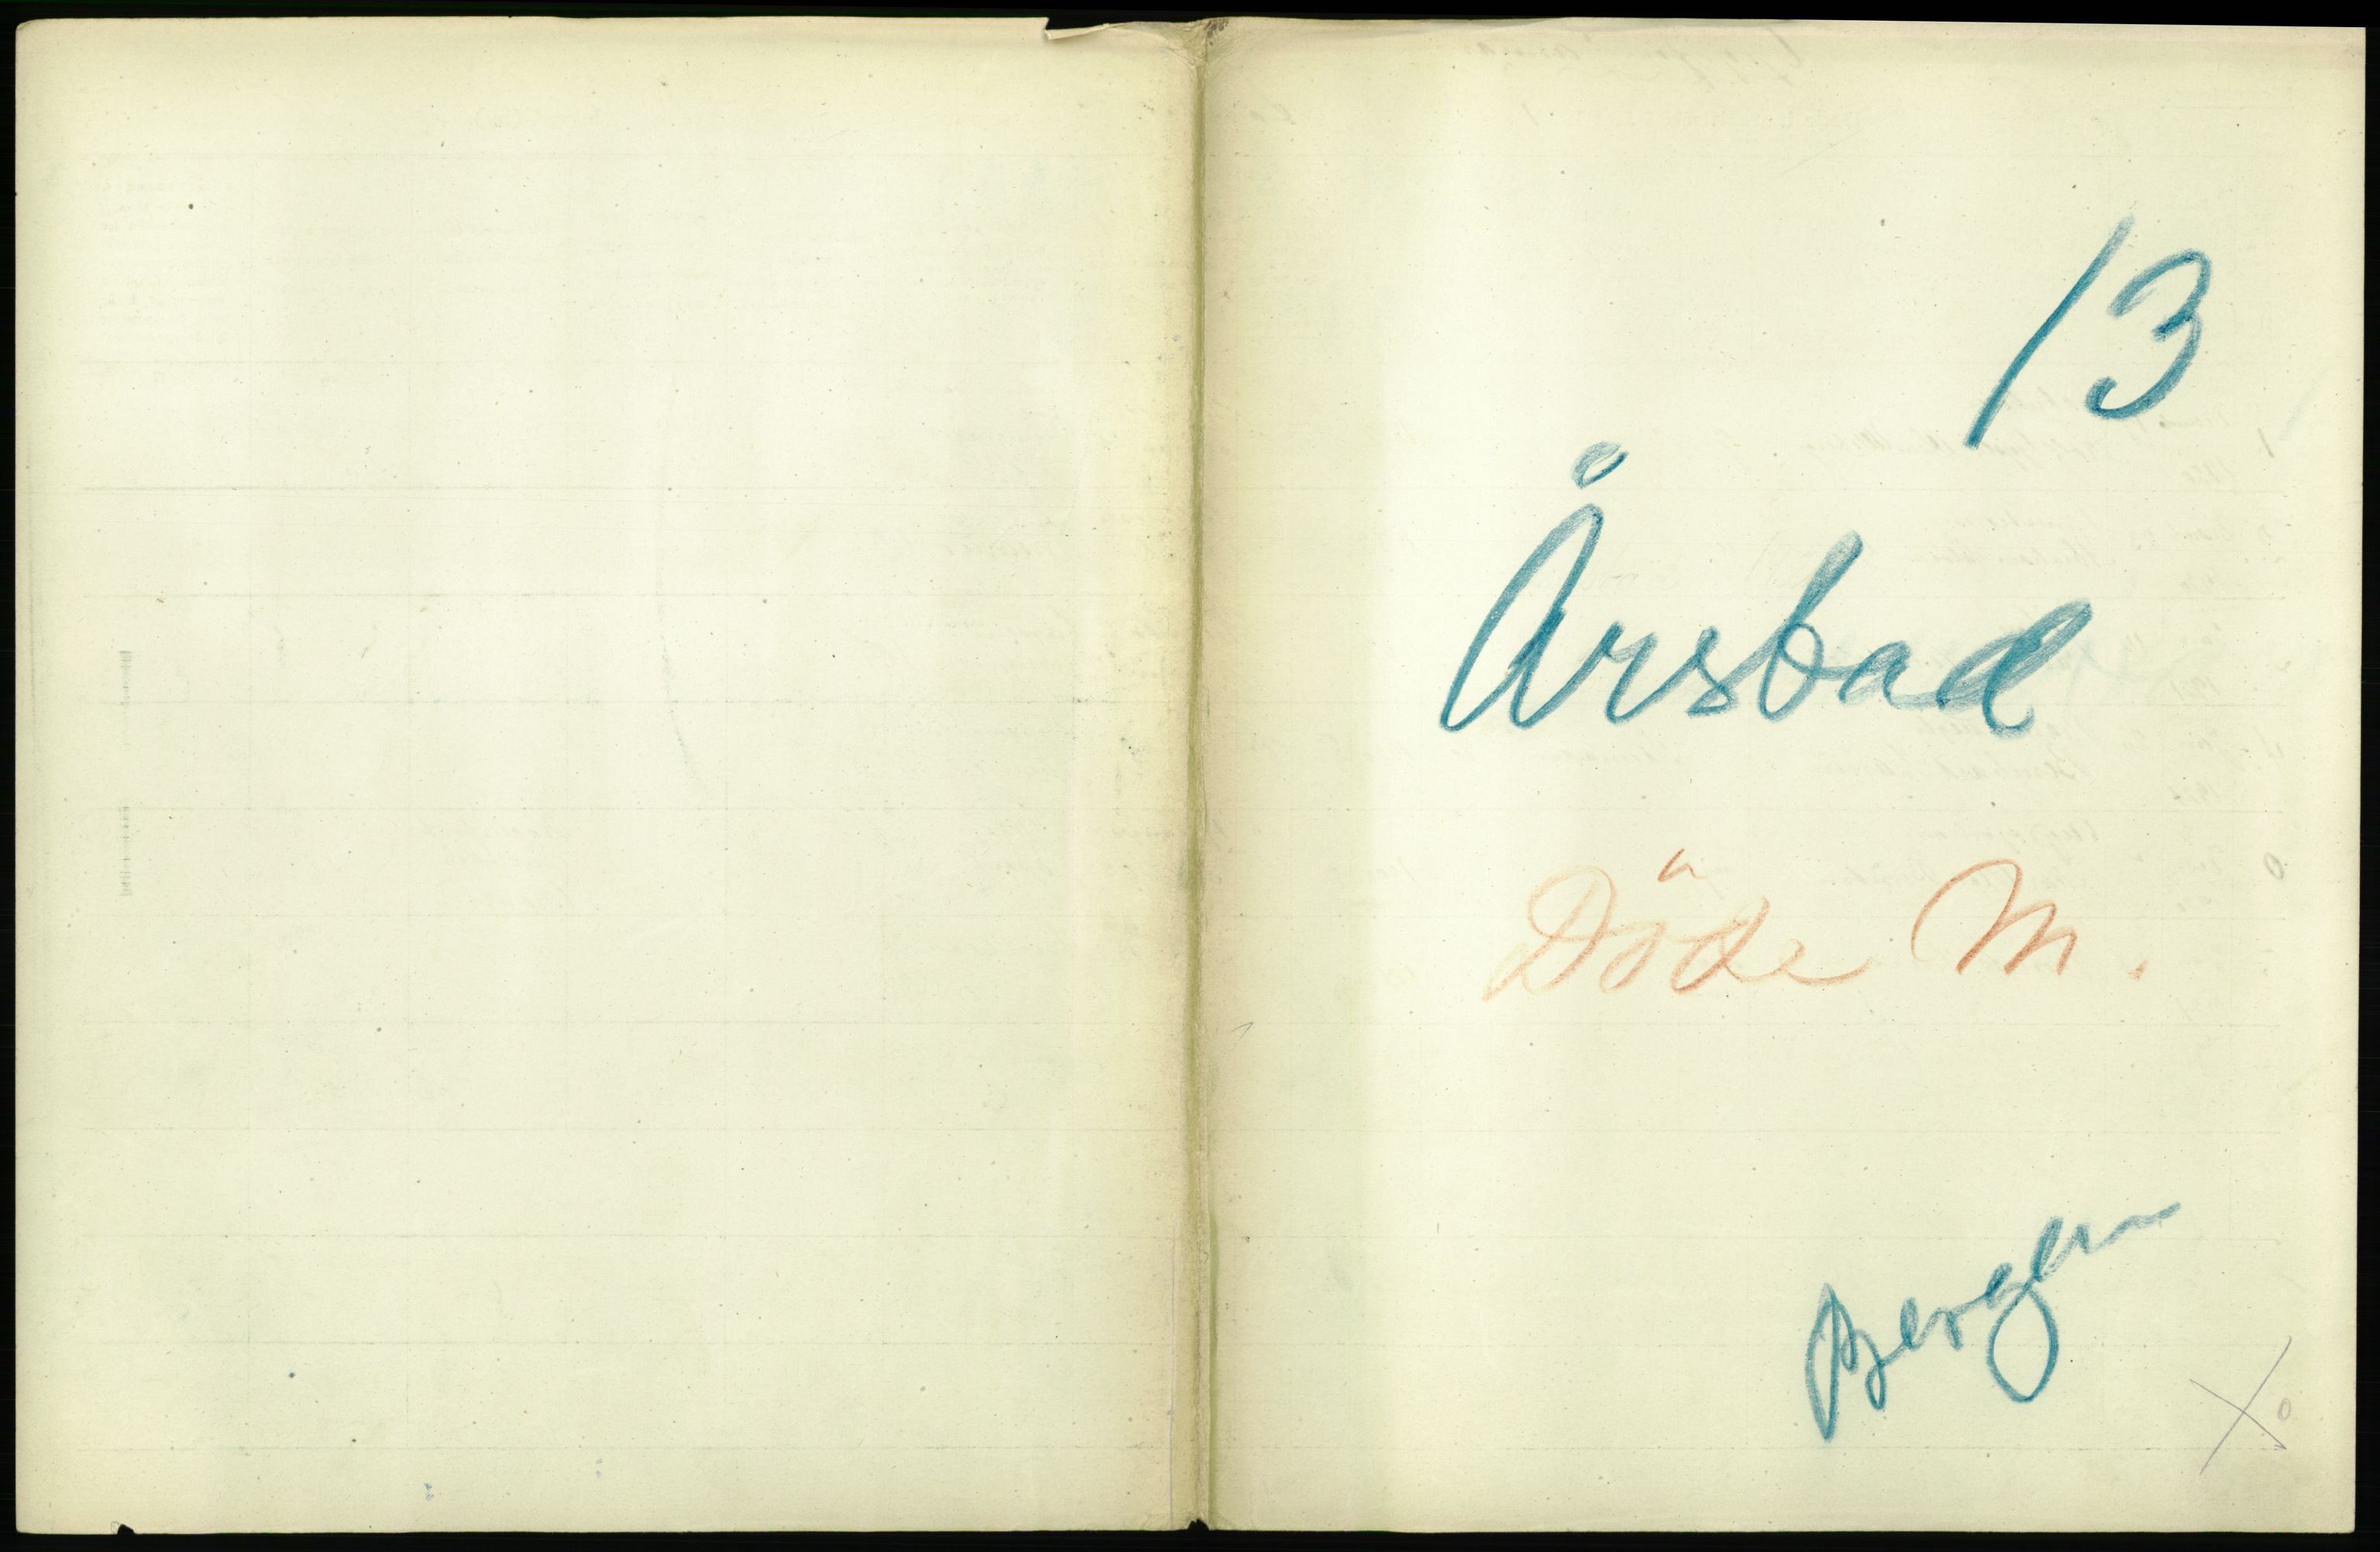 13
Årsbad
Döde M.
Bergen